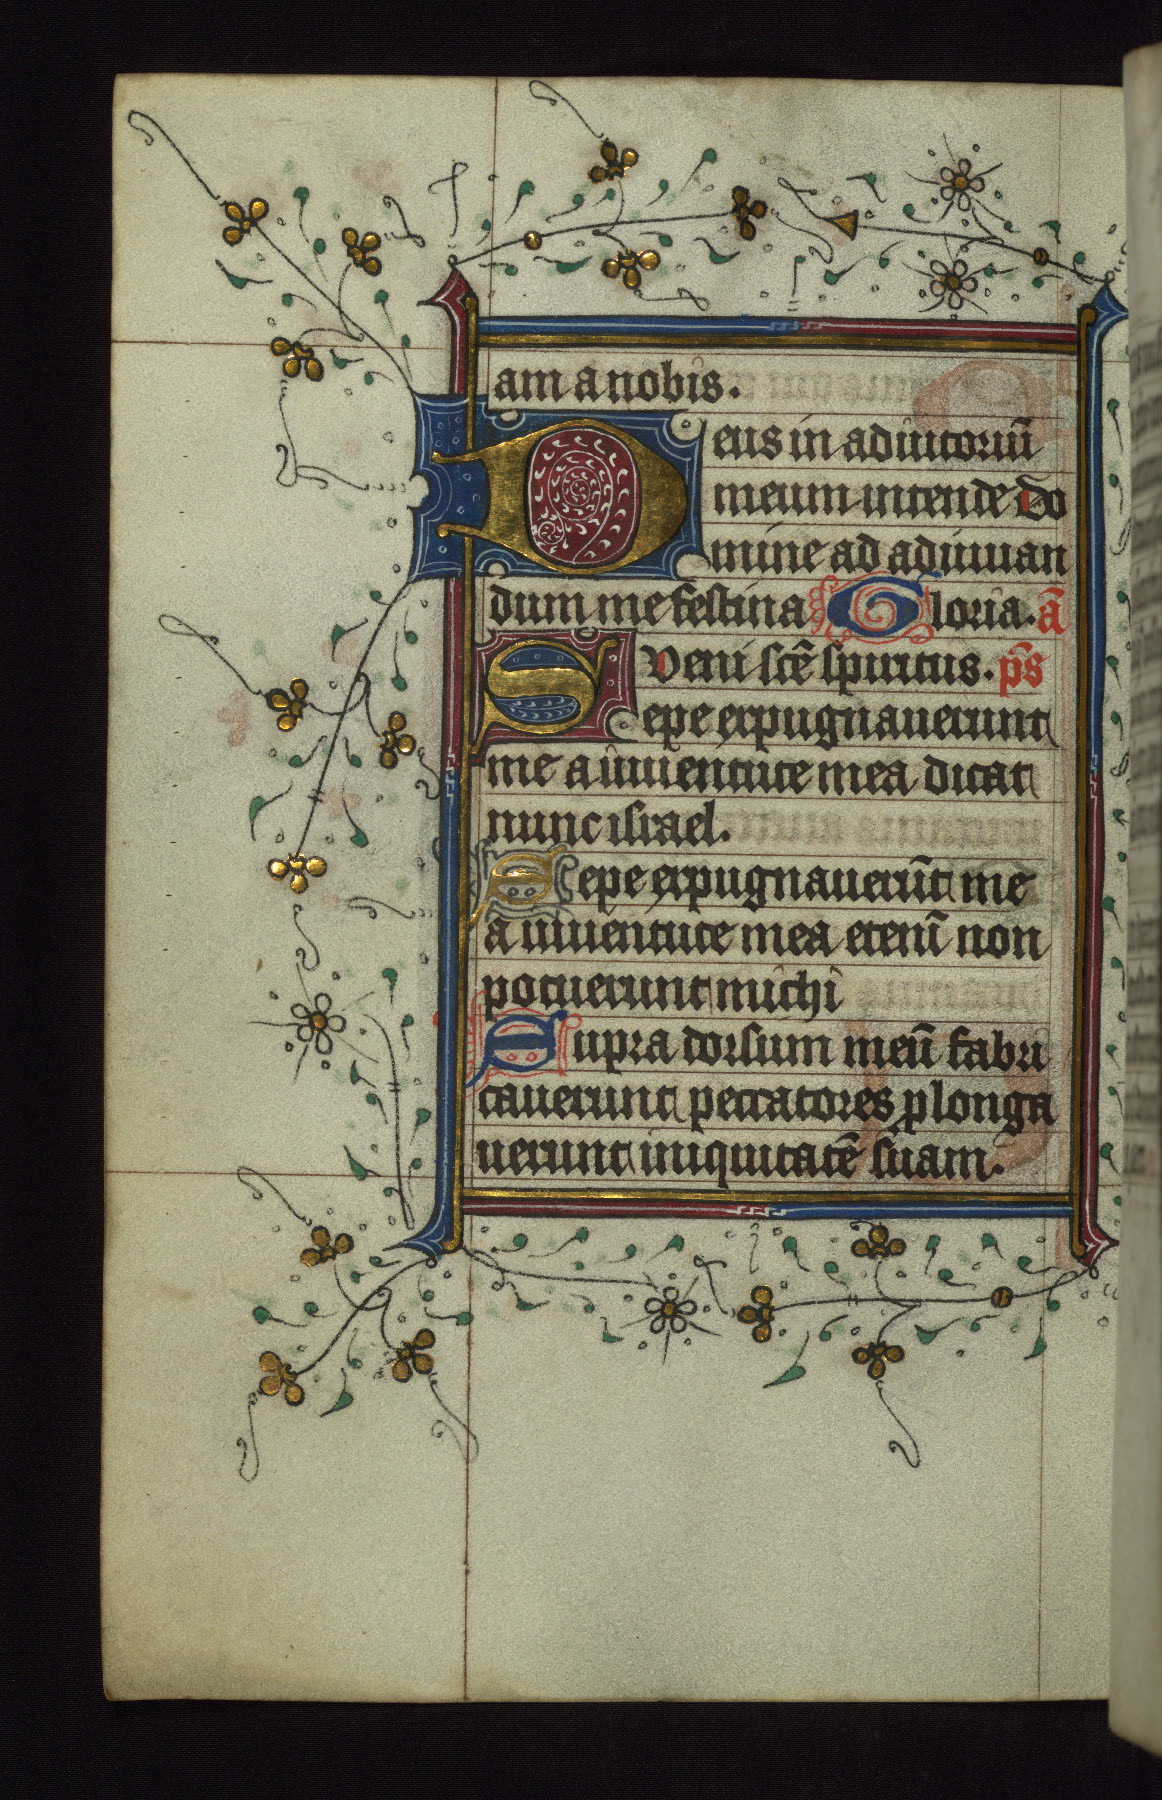 am a nobis.
Deus in adiutoriũ
meum intende Do
mine ad adiuuan
dum me festina Gloria. ã
Veni sctẽ spiritus. p̃s
Sepe expugnauerunt
me a iuuentute mea dicat
nunc israel.
Sepe expugnauerũt me
a iuuentute mea etenĩ non
potuerunt michi
Supra dorsum meũ fabri
cauerunt peccatores plonga
uerunt iniquitatẽ suam.